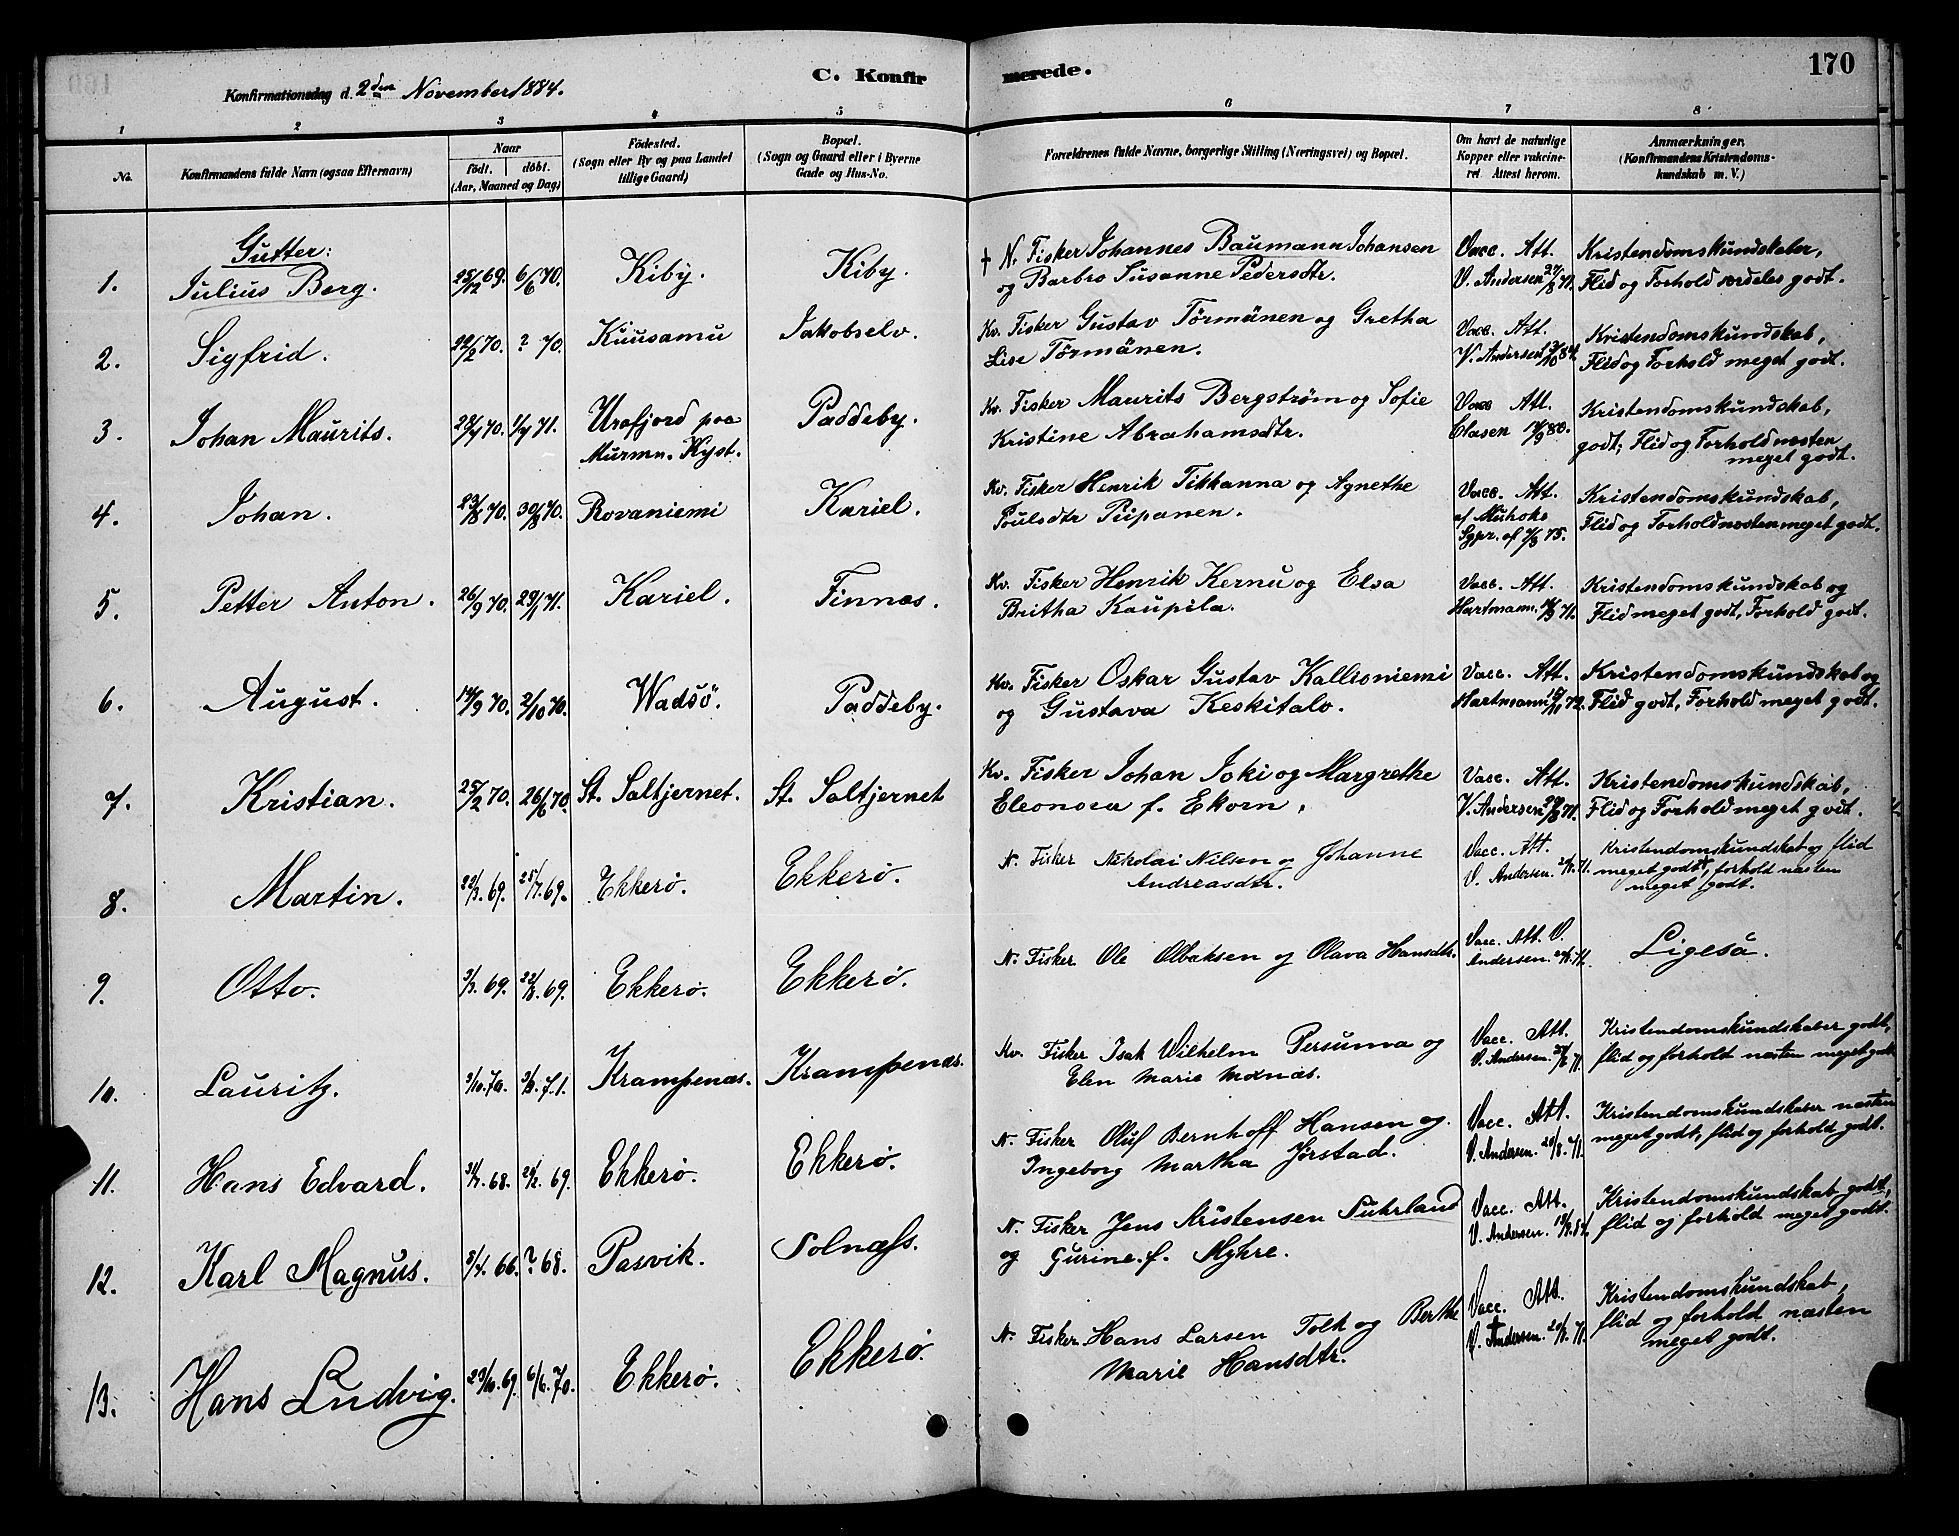 170
C. Konfirmerede.
Konfirmationsdag d. 2den November 1884.
1 2 3 4 5 6 7 8
No.
Konfirmandens fulde Navn (ogsaa Efternavn)
Naar
født. døbt.
(Aar, Maaned og Dag)
Fødested.
(Sogn eller By og paa Landet
tillige Gaard)
Bopæl.
(Sogn og Gaard eller i Byerne
Gade og Hus-No.
Forældrenes fulde Navne, borgerlige Stilling (Næringsvei) og Bopæl.
Om havt de naturlige
Kopper eller vakcine-
ret. Attest herom.
Anmærkninger.
(Konfirmandens Kristendoms-
kundskab m. V.)
Gutter:
1. Julius Berg. 25/12 69. 6/6 70. Kiby. Kiby.
† N. Fisker Johannes Baumann Johansen
og Barbro Susanne Pedersdtr.
Vacc. Att.
V. Andersen 71.
Kristendomskundskaber,
Flid og Forhold særdeles godt.
2. Sigfrid. 22/2 70. ? 70. Kuusamu Jakobselv.
Kv. Fisker Gustav Törmänen og Gretha
Lise Törmänen.
Vacc. Att.
V. Andersen 84.
Kristendomskundskab,
Flid og Forhold meget godt.
3. Johan Maurits. 70. 71. Urafjord paa
Murmn. Kyst. Paddeby.
Kv. Fisker Maurits Bergström og Sofie
Kristine Abrahamsdtr.
Vacc Att.
Clasen 80.
Kristendomskundskab,
godt; Flid og Forhold næsten
meget godt.
4. Johan. 23/8 70. 30/8 70. Rovaniemi Kariel.
Kv. Fisker Henrik Tikkanna og Agnethe
Poulsdtr Piipanen.
Vacc. Att.
af
Sgpr. af 75.
Kristendomskundskab,
Flid og Forhold næsten meget godt.
5. Petter Anton. 26/9 70. 29/1 71. Kariel. Finnæs.
Kv. Fisker Henrik Kernu og Elsa
Britha Kaupila.
Vacc. Att.
Hartmann. 71.
Kristendomskundskab og
Flid meget godt, Forhold godt.
6. August. 70. 2/10 70. Wadsö. Paddeby.
Kv. Fisker Oskar Gustav Kallioniemi
og Gustava Keskitalo.
Vacc. Att.
Hartmann 72.
Kristendomskundskab og
Flid godt, Forhold meget godt.
7. Kristian. 25/2 70. 26/6 70. St. Saltjernet. St. Saltjernet
Kv. Fisker Johan Joki og Margrethe
Eleonora f. Ekorn,
Vacc. Att.
V. Andersen 71.
Kristendomskundskab,
Flid og Forhold meget godt.
8. Martin. 22/3. 69. 25/7. 69. Ekkerø. Ekkerø.
N. Fisker Nikolai Nilsen og Johanne
Andreasdtr.
Vacc. Att.
V. Andersen. 71.
Kristendomskundskab og flid
meget godt, forhold næsten
meget godt.
9. Otto. 69. 22/8. 69. Ekkerø. Ekkerø.
N. Fisker Ole Olbaksen og Olava Hansdtr.
Vacc. Att. V.
Andersen. 71.
Ligeså.
10. Lauritz. 3/10. 70. 71. Krampenæs. Krampenæs.
Kv. Fisker Isak Wilhelm Persuma og
Elen Marie Moxnæs.
Vacc. Att.
V. Andersen. 71.
Kristendomskundskaber godt,
flid og forhold næsten meget godt
11. Hans Edvard. 68. 69. Ekkerø. Ekkerø.
N. Fisker Oluf Bernhoff Hansen og
Ingeborg Martha Jörstad.
Vacc. Att.
V. Andersen. 71.
Kristendomskundskaber næsten
meget godt, flid og forhold godt.
12. Karl Magnus. 3/4. 66. ? 68. Pasvik. Solnæss.
N. Fisker Jens Kristensen Suhrland
og Gurine f. Myhre.
Vacc. Att.
V. Andersen.
Kristendomskundskab godt,
flid og forhold meget godt.
13. Hans Ludvig. 23/10. 69. 6/6. 70. Ekkerø. Ekkerø.
N. Fisker Hans Larsen Tolk og Berthe
Marie Hansdtr.
Vacc. Att.
V. Andersen. 71.
Kristendomskundskab,
flid og forhold næsten
meget godt.